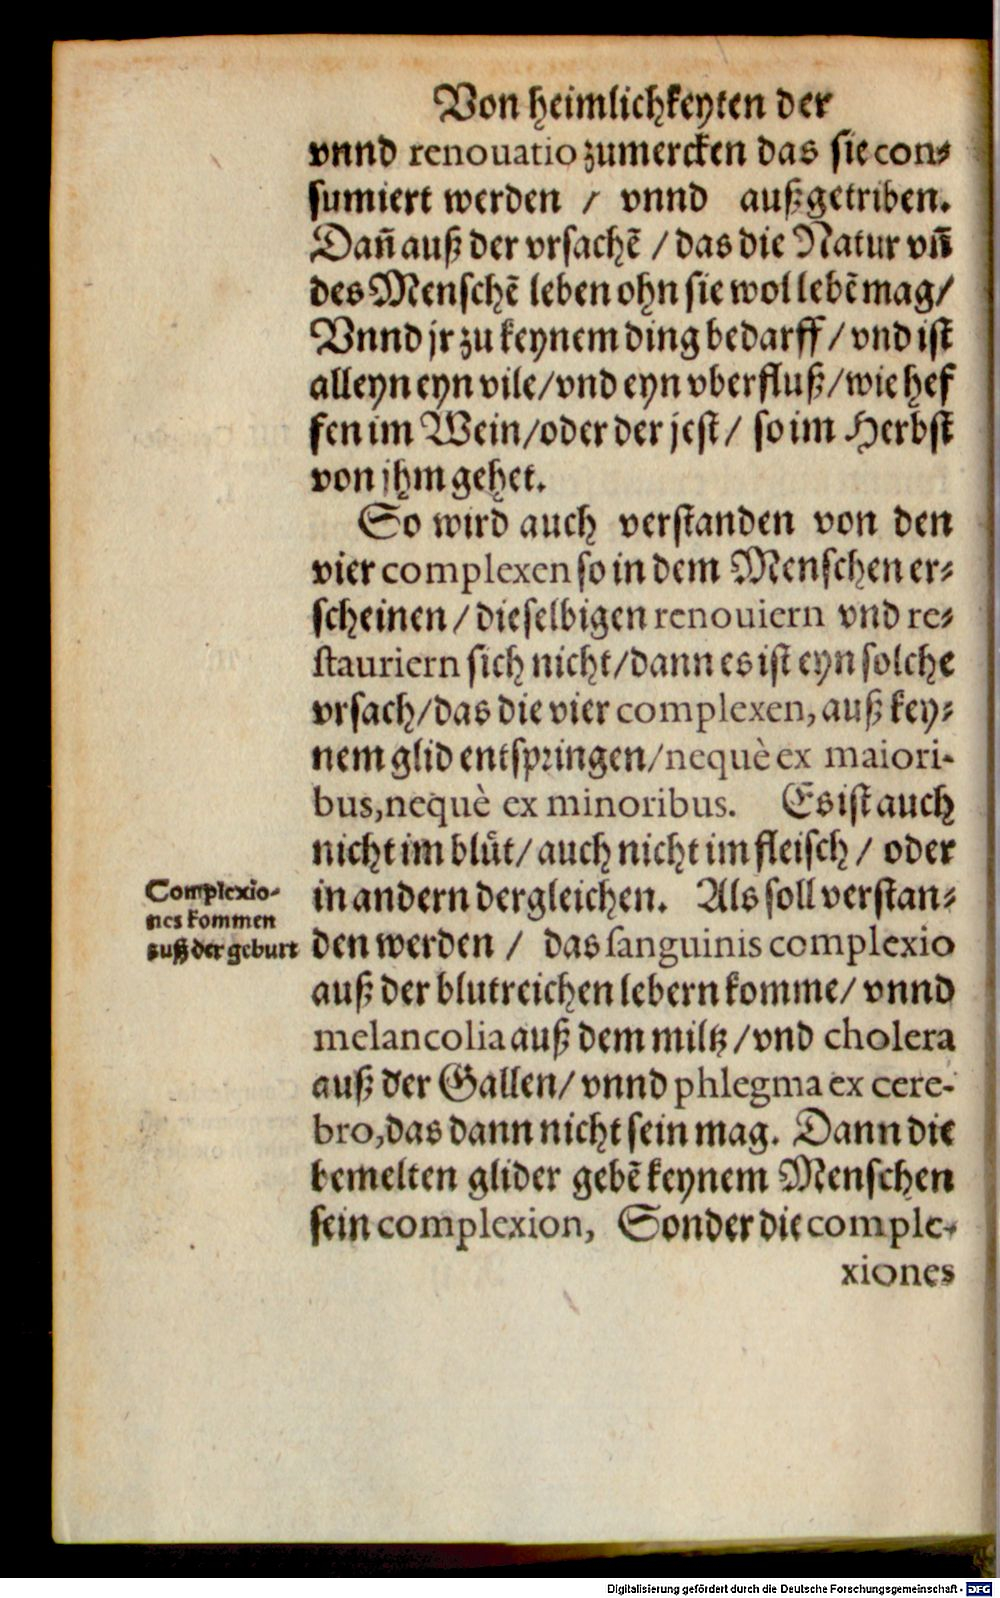 Von heimlichkeyten der
vnnd renouatio zumercken das sie con⸗
sumiert werden / vnnd außgetriben.
Dañ auß der vrsachē / das die Natur vñ
des Menschē leben ohn sie wol lebē mag /
Vnnd jr zu keynem ding bedarff / vnd ist
alleyn eyn vile / vnd eyn vberfluß / wie hef
fen im Wein / oder der jest / so im Herbst
von jhm gehet.
So wird auch verstanden von den
vier complexen so in dem Menschen er⸗
scheinen / dieselbigen renouiern vnd re⸗
stauriern sich nicht / dann es ist eyn solche
vrsach / das die vier complexen, auß key⸗
nem glid entspringen / nequè ex maiori-
bus, nequè ex minoribus. Es ist auch
nicht im blůt / auch nicht im fleisch / oder
in andern dergleichen. Als soll verstan⸗
den werden / das sanguinis complexio
auß der blutreichen lebern komme / vnnd
melancolia auß dem miltz / vnd cholera
auß der Gallen / vnnd phlegma ex cere-
bro, das dann nicht sein mag. Dann die
bemelten glider gebē keynem Menschen
sein complexion, Sonder die comple-
xiones
Complexio-
nes kommen
auß der geburt
Digitalisierung gefördert durch die Deutsche Forschungsgemeinschaft - DFG